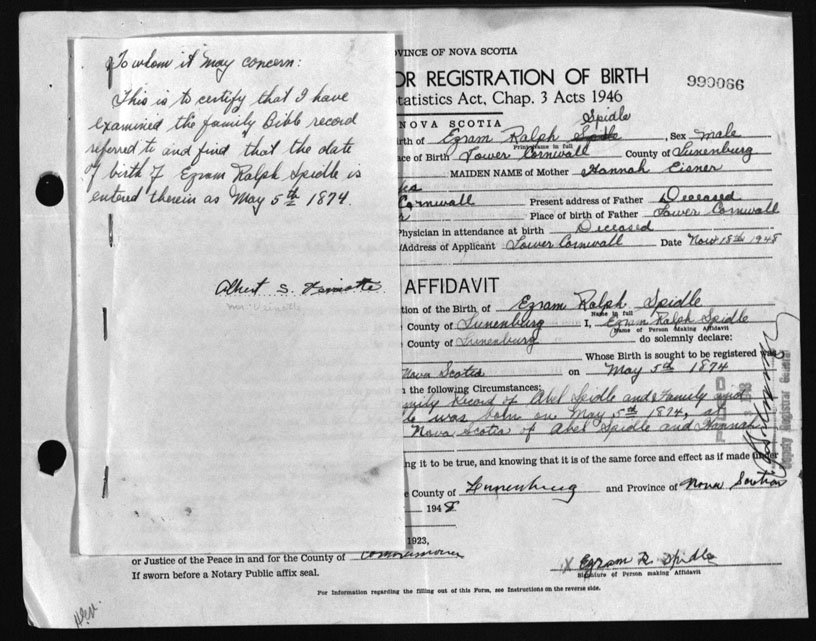 To whom it may concern:
This is to certify that I have
examined the family Bible record
referred to and find that the date
of birth of Ezram Ralph Spidle is
entered therein as May 5th 1874.
Albert S.
OVINCE OF NOVA SCOTIA
OR REGISTRATION OF BIRTH
990066
tatistics Act, Chap. 3 Acts 1946
NOVA SCOTIA
Spidle
irth of Ezram Ralph Spidle, Sex male
Print name in full
ace of Birth Lower Cornwall County of Lunenburg
MAIDEN NAME of Mother Hannah Eisner
Cornwall Present address of Father Deceased
Place of birth of Father Lower Cornwall
Physician in attendance at birth Deceased
/Address of Applicant Lower Cornwall Date Nov 18th 1948
AFFIDAVIT
tion of the Birth of Ezram Ralph Spidle
Name in full
County of Lunenburg I, Ezram Ralph Spidle
Name of Person Making Affidavit
County of Lunenburg do solemnly declare:
Whose Birth is sought to be registered was
Nova Scotia on May 5th 1874
n the following Circumstances:
mily Record of Abel Spidle and Family and
was born on May 5th 1874, at
Nova Scotia of Abel Spidle and Hannah
ng it to be true, and knowing that it is of the same force and effect as if made under
County of Lunenburg and Province of Nova Scotia
1948
1923,
or Justice of the Peace in and for the County of
If sworn before a Notary Public affix seal.
x Ezram R. Spidle
Signature of Person making Affidavit
For Information regarding the filling out of this Form, see Instructions on the reverse side.
Deputy Registrar General